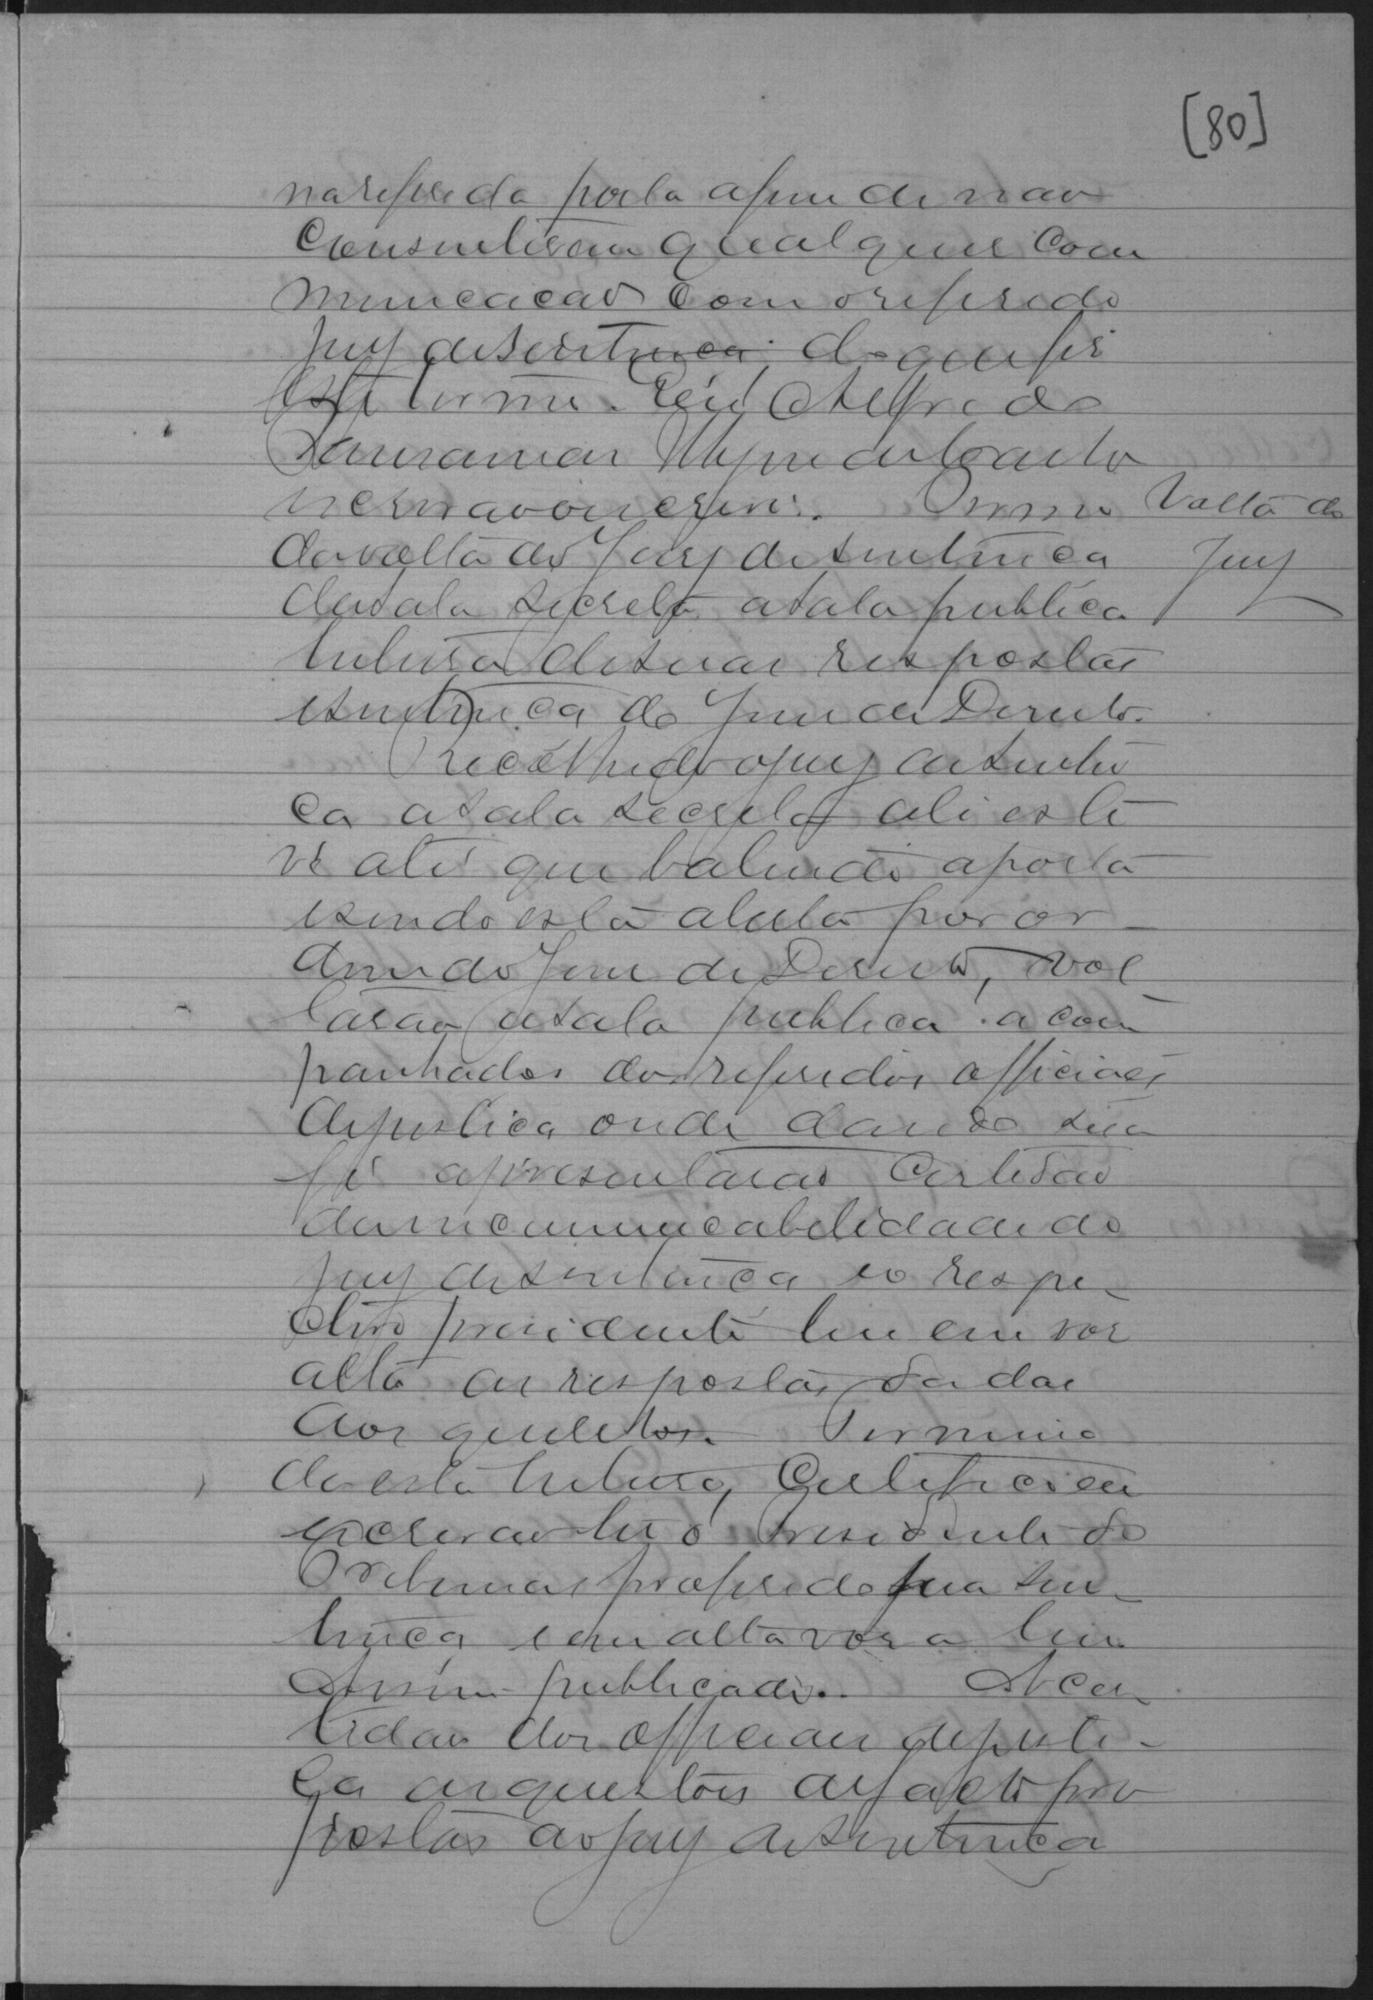 [80]
na referida porta afim de não
consentirem qualquer com
municacao com o referido
jury de sentença do que fiz
este termo. Eu, Alfredo
de Castro
escrivão escrevi. Termo
da volta do Jury de sentença
da sala secreta a sala publica
leitura de suas respostas
e sentença do Juiz de Direito.
Recolhido o jury de senten
ça a sala secreta ali este
ve até que batendo a porta
e sendo esta aberta por or
dem do Juiz de Direito, vol
tarão a sala publica acom
panhados dos referidos officiaes
de justiça onde dando sua
fé apresentarao certidão
da incommunicabilidade do
jury de sentença e o respe
ctivo presidente leu em voz
alta as respostas dadas
aos quesitos. Termina
da esta leitura, Certifico eu
escrivão ter o Presidente do
Tribunal proferido sua sen
tença e em alta voz a leu
Assim publicada. A cer
tidão dos officiaes de justi
ça as questões de facto pro
postas ao jury de sentença
Volta do
Jury